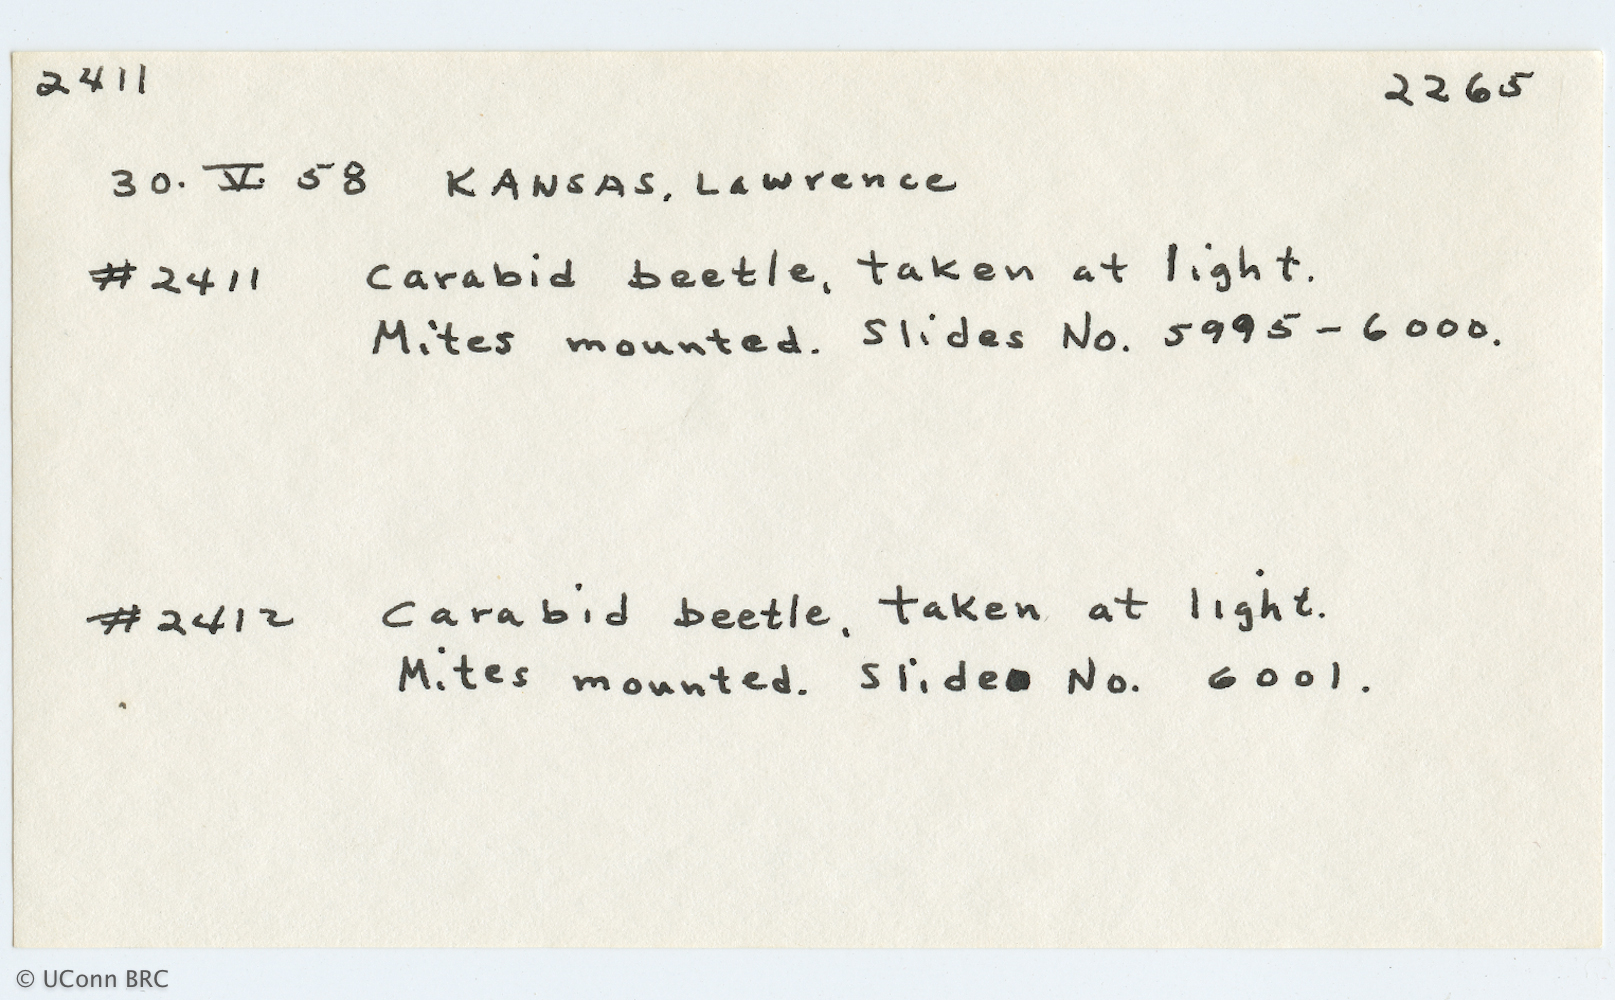 2411 2265
30. V. 58 KANSAS, Lawrence
#2411 Carabid beetle, taken at light.
Mites mounted. Slides No. 5995-6000.
#2412 Carabid beetle, taken at light.
Mites mounted. Slide No. 6001.
© UConn BRC